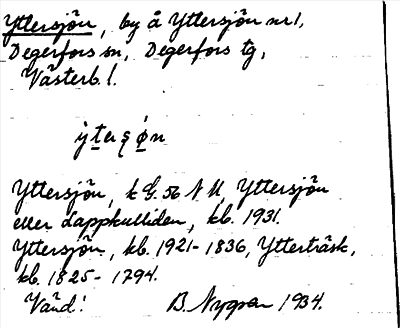 Yttersjön, by å Yttersjön nr 1,
Degerfors sn, Degerfors tg,
Västerb. l.
ỳtersø̣n
Yttersjön, k G. 56 N U, Yttersjön
eller Lappkulliden, kb. 1931.
Yttersjön, kb. 1921-1836, Ytterträsk,
kb. 1825-1794.
Vänd! B. Nygren 1934.